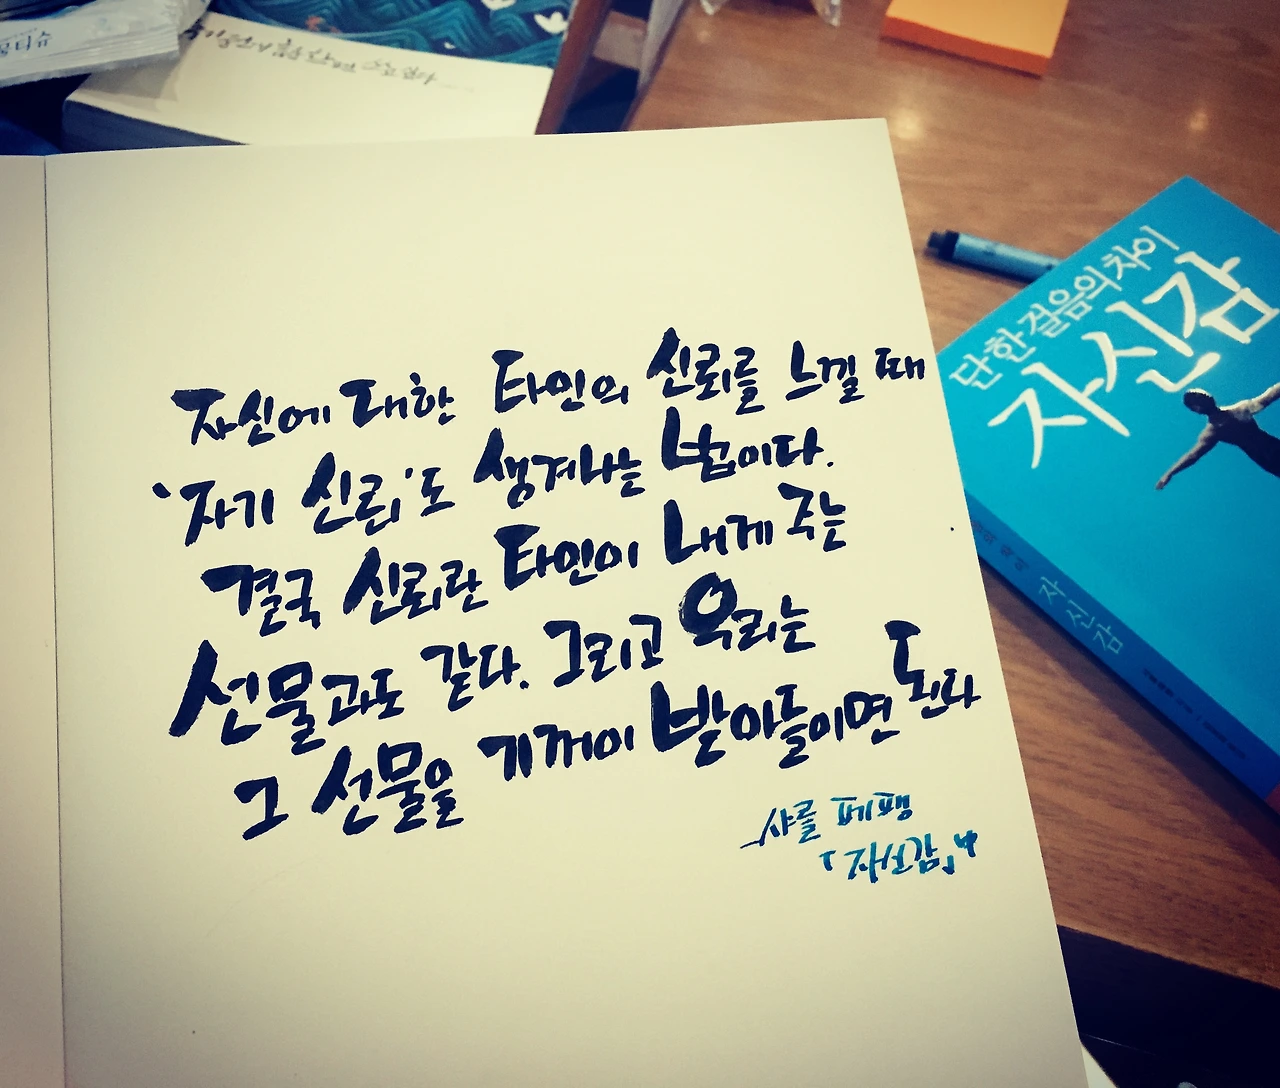 물티슈
자신에 대한 타인의 신뢰를 느낄 때
'자기 신뢰'도 생겨나는 법이다.
결국 신뢰란 타인이 내게 주는
선물과도 같다. 그리고 우리는
그 선물을 기꺼이 받아들이면 된다
샤를 페팽
「자신감」中
단 한 걸음의 차이
자신감
자신감